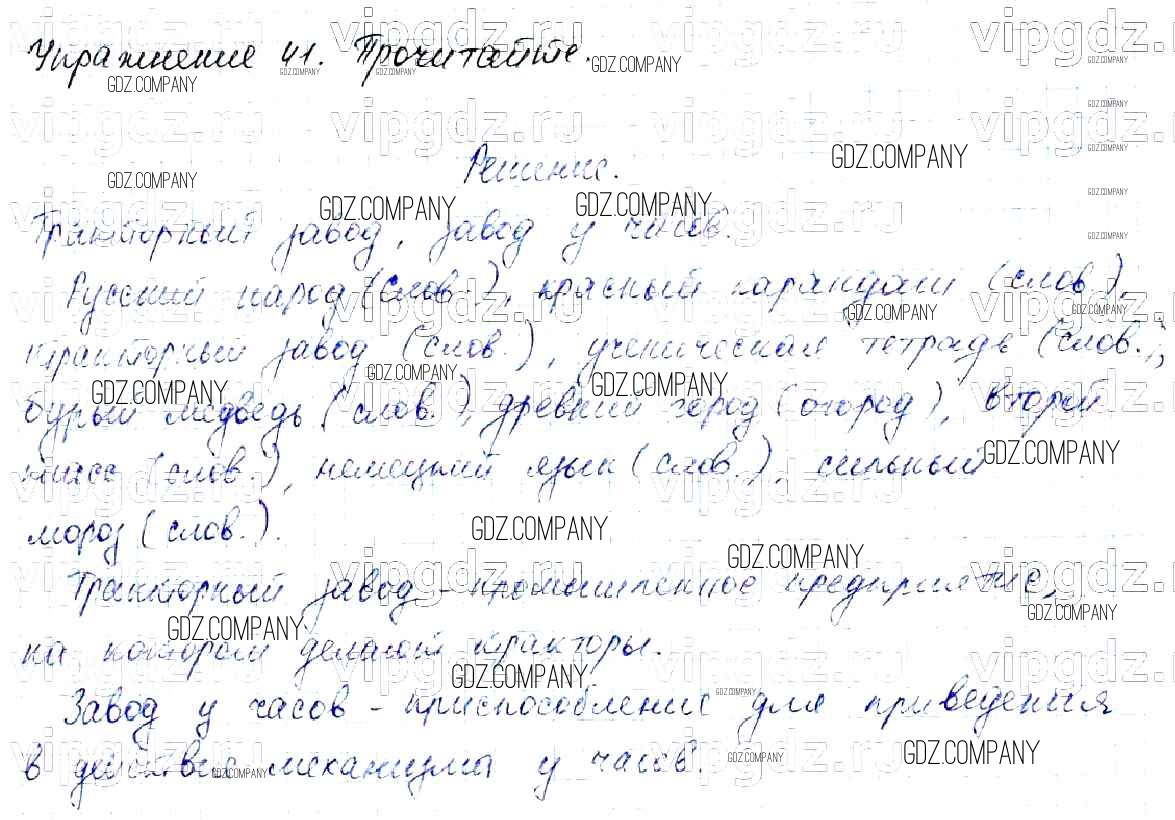 Упражнение 41. Прочитайте.
Решение.
Тракторный завод, завод у часов.
Русский народ (слов.), красный карандаш (слов.),
тракторный завод (слов.), ученическая тетрадь (слов.),
бурый медведь (слов.), древний город (огород), второй
класс (слов.), немецкий язык (слов.), сильный
мороз (слов.).
Тракторный завод - промышленное предприятие,
на котором делают тракторы.
Завод у часов - приспособление для приведения
в действие механизма у часов.
vipgdz.ru
GDZ.COMPANY